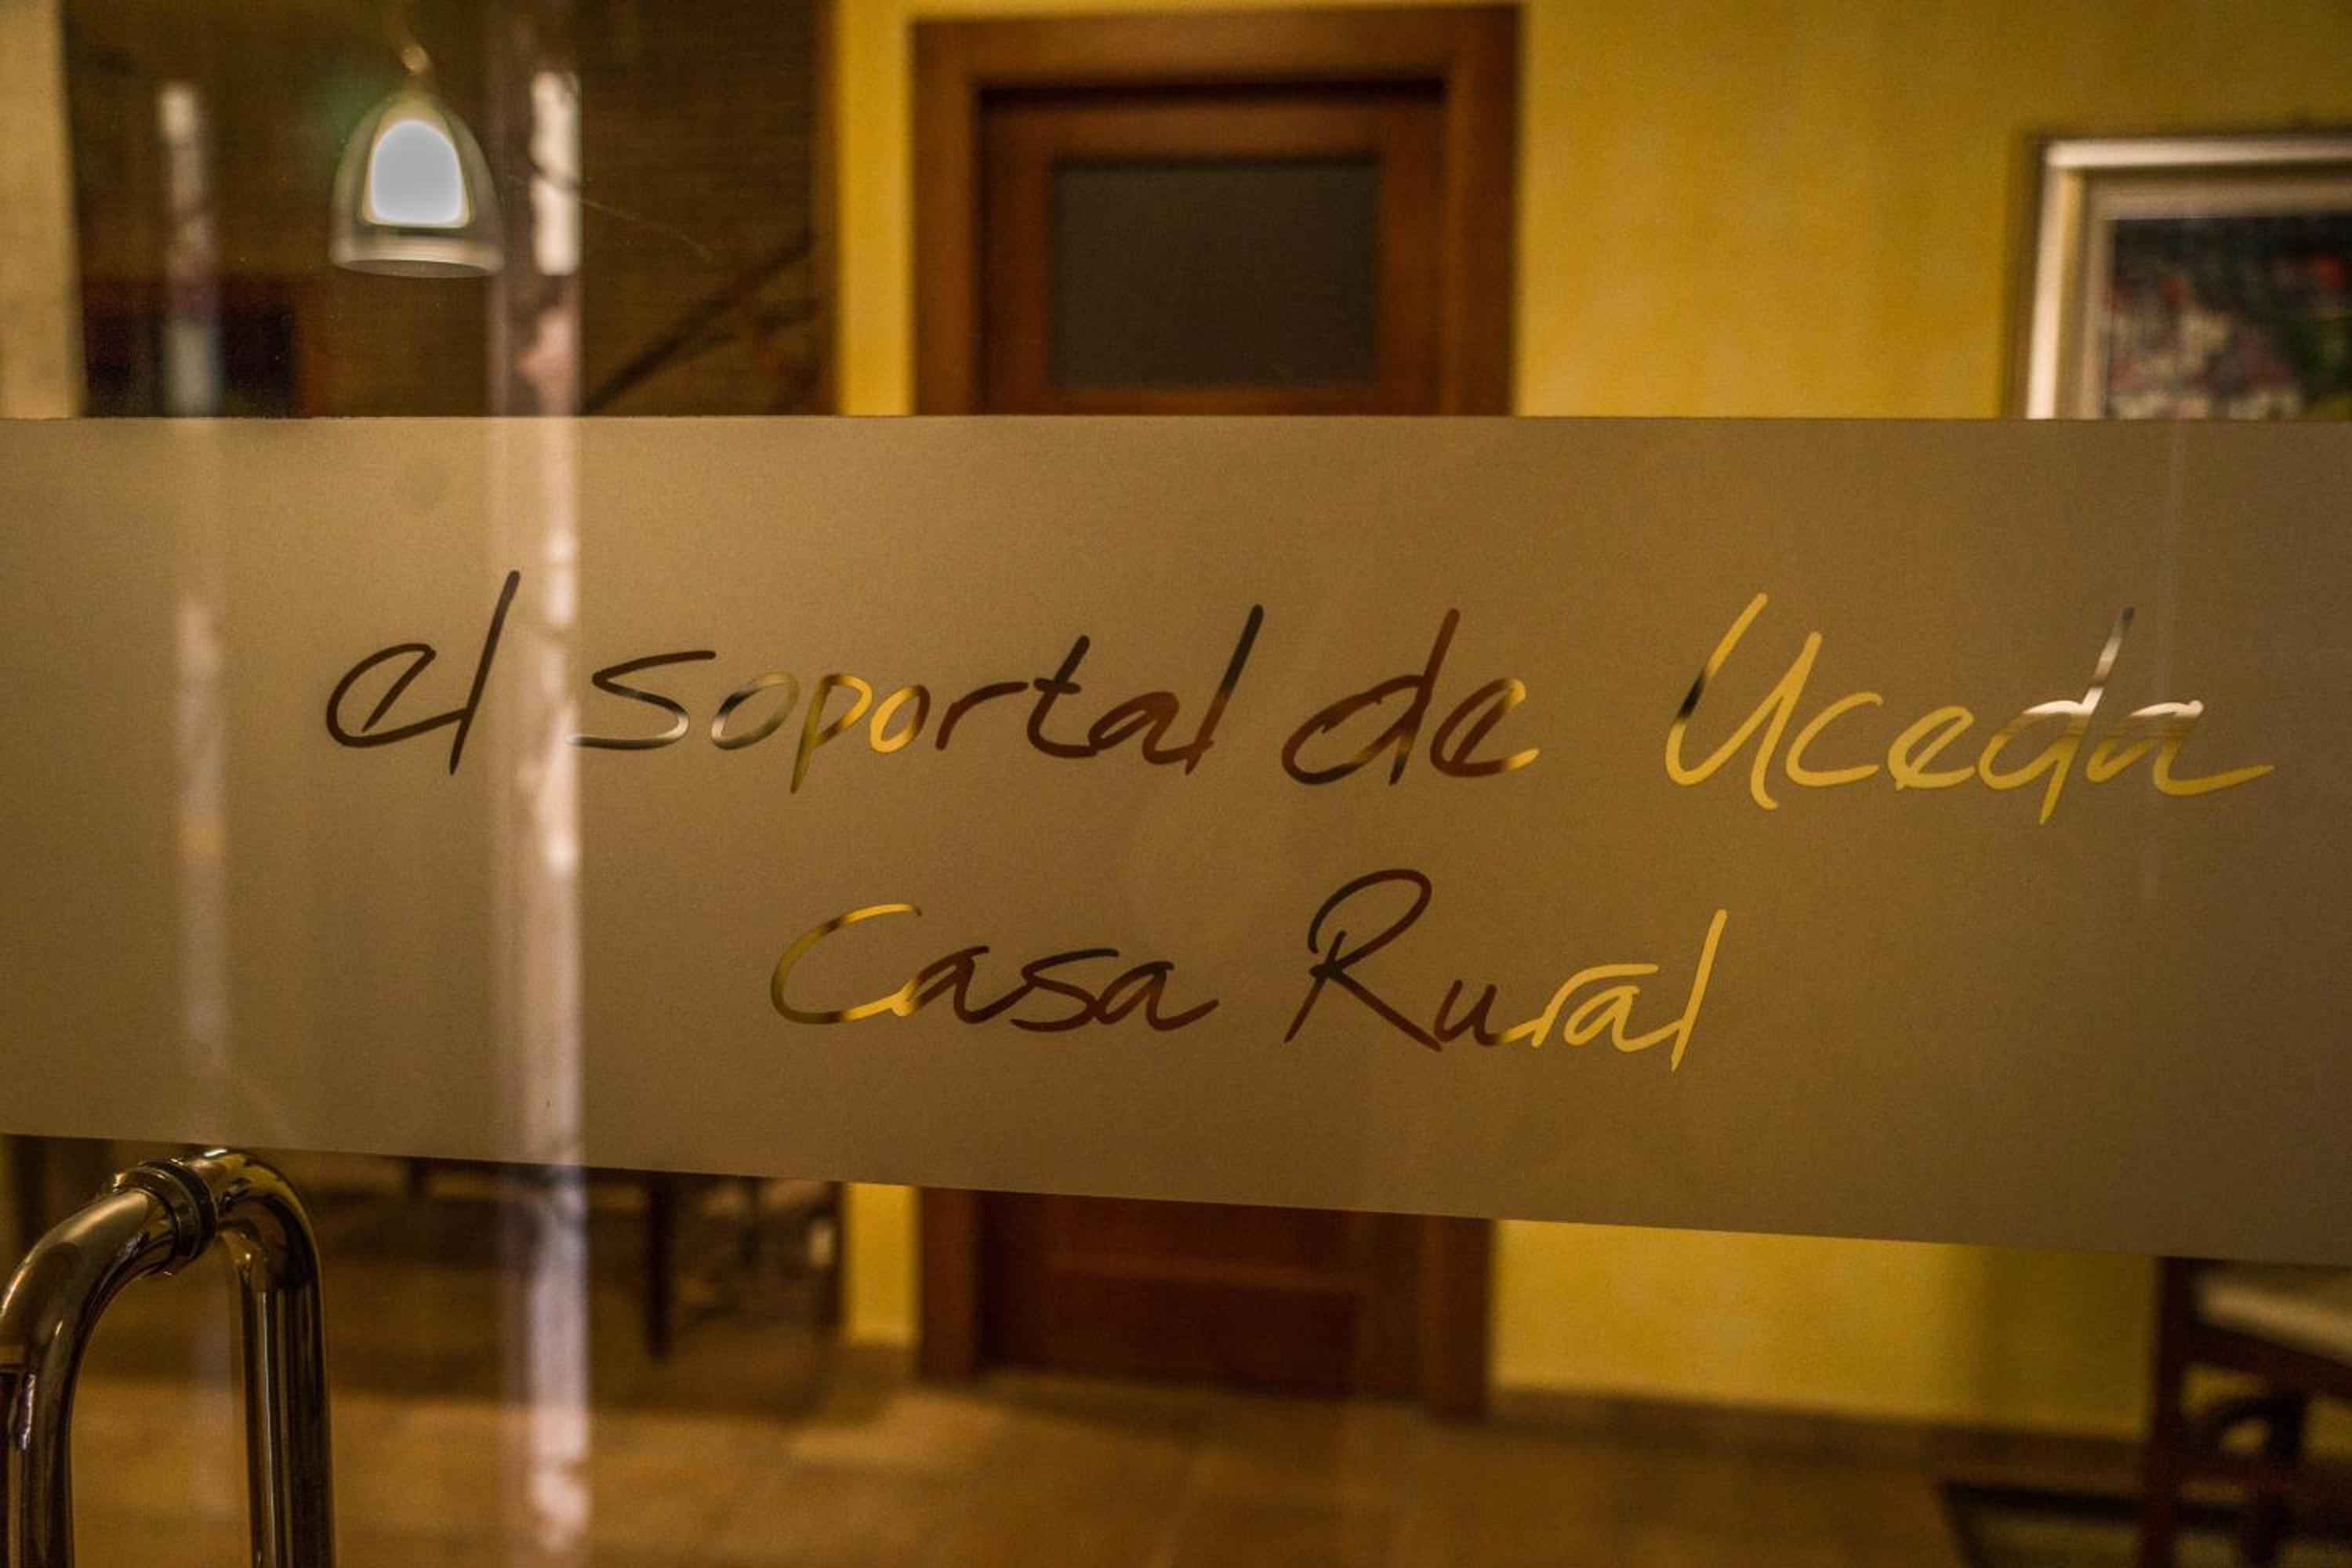 el soportal de Uceda
Casa Rural